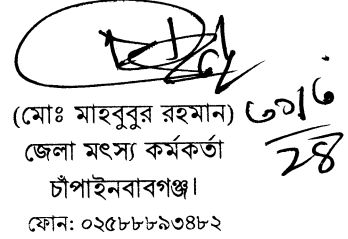 (মোঃ মাহবুবুর রহমান)
জেলা মৎস্য কর্মকর্তা
চাঁপাইনবাবগঞ্জ।
ফোন: ০২৫৮৮৮৯৩৪৮২